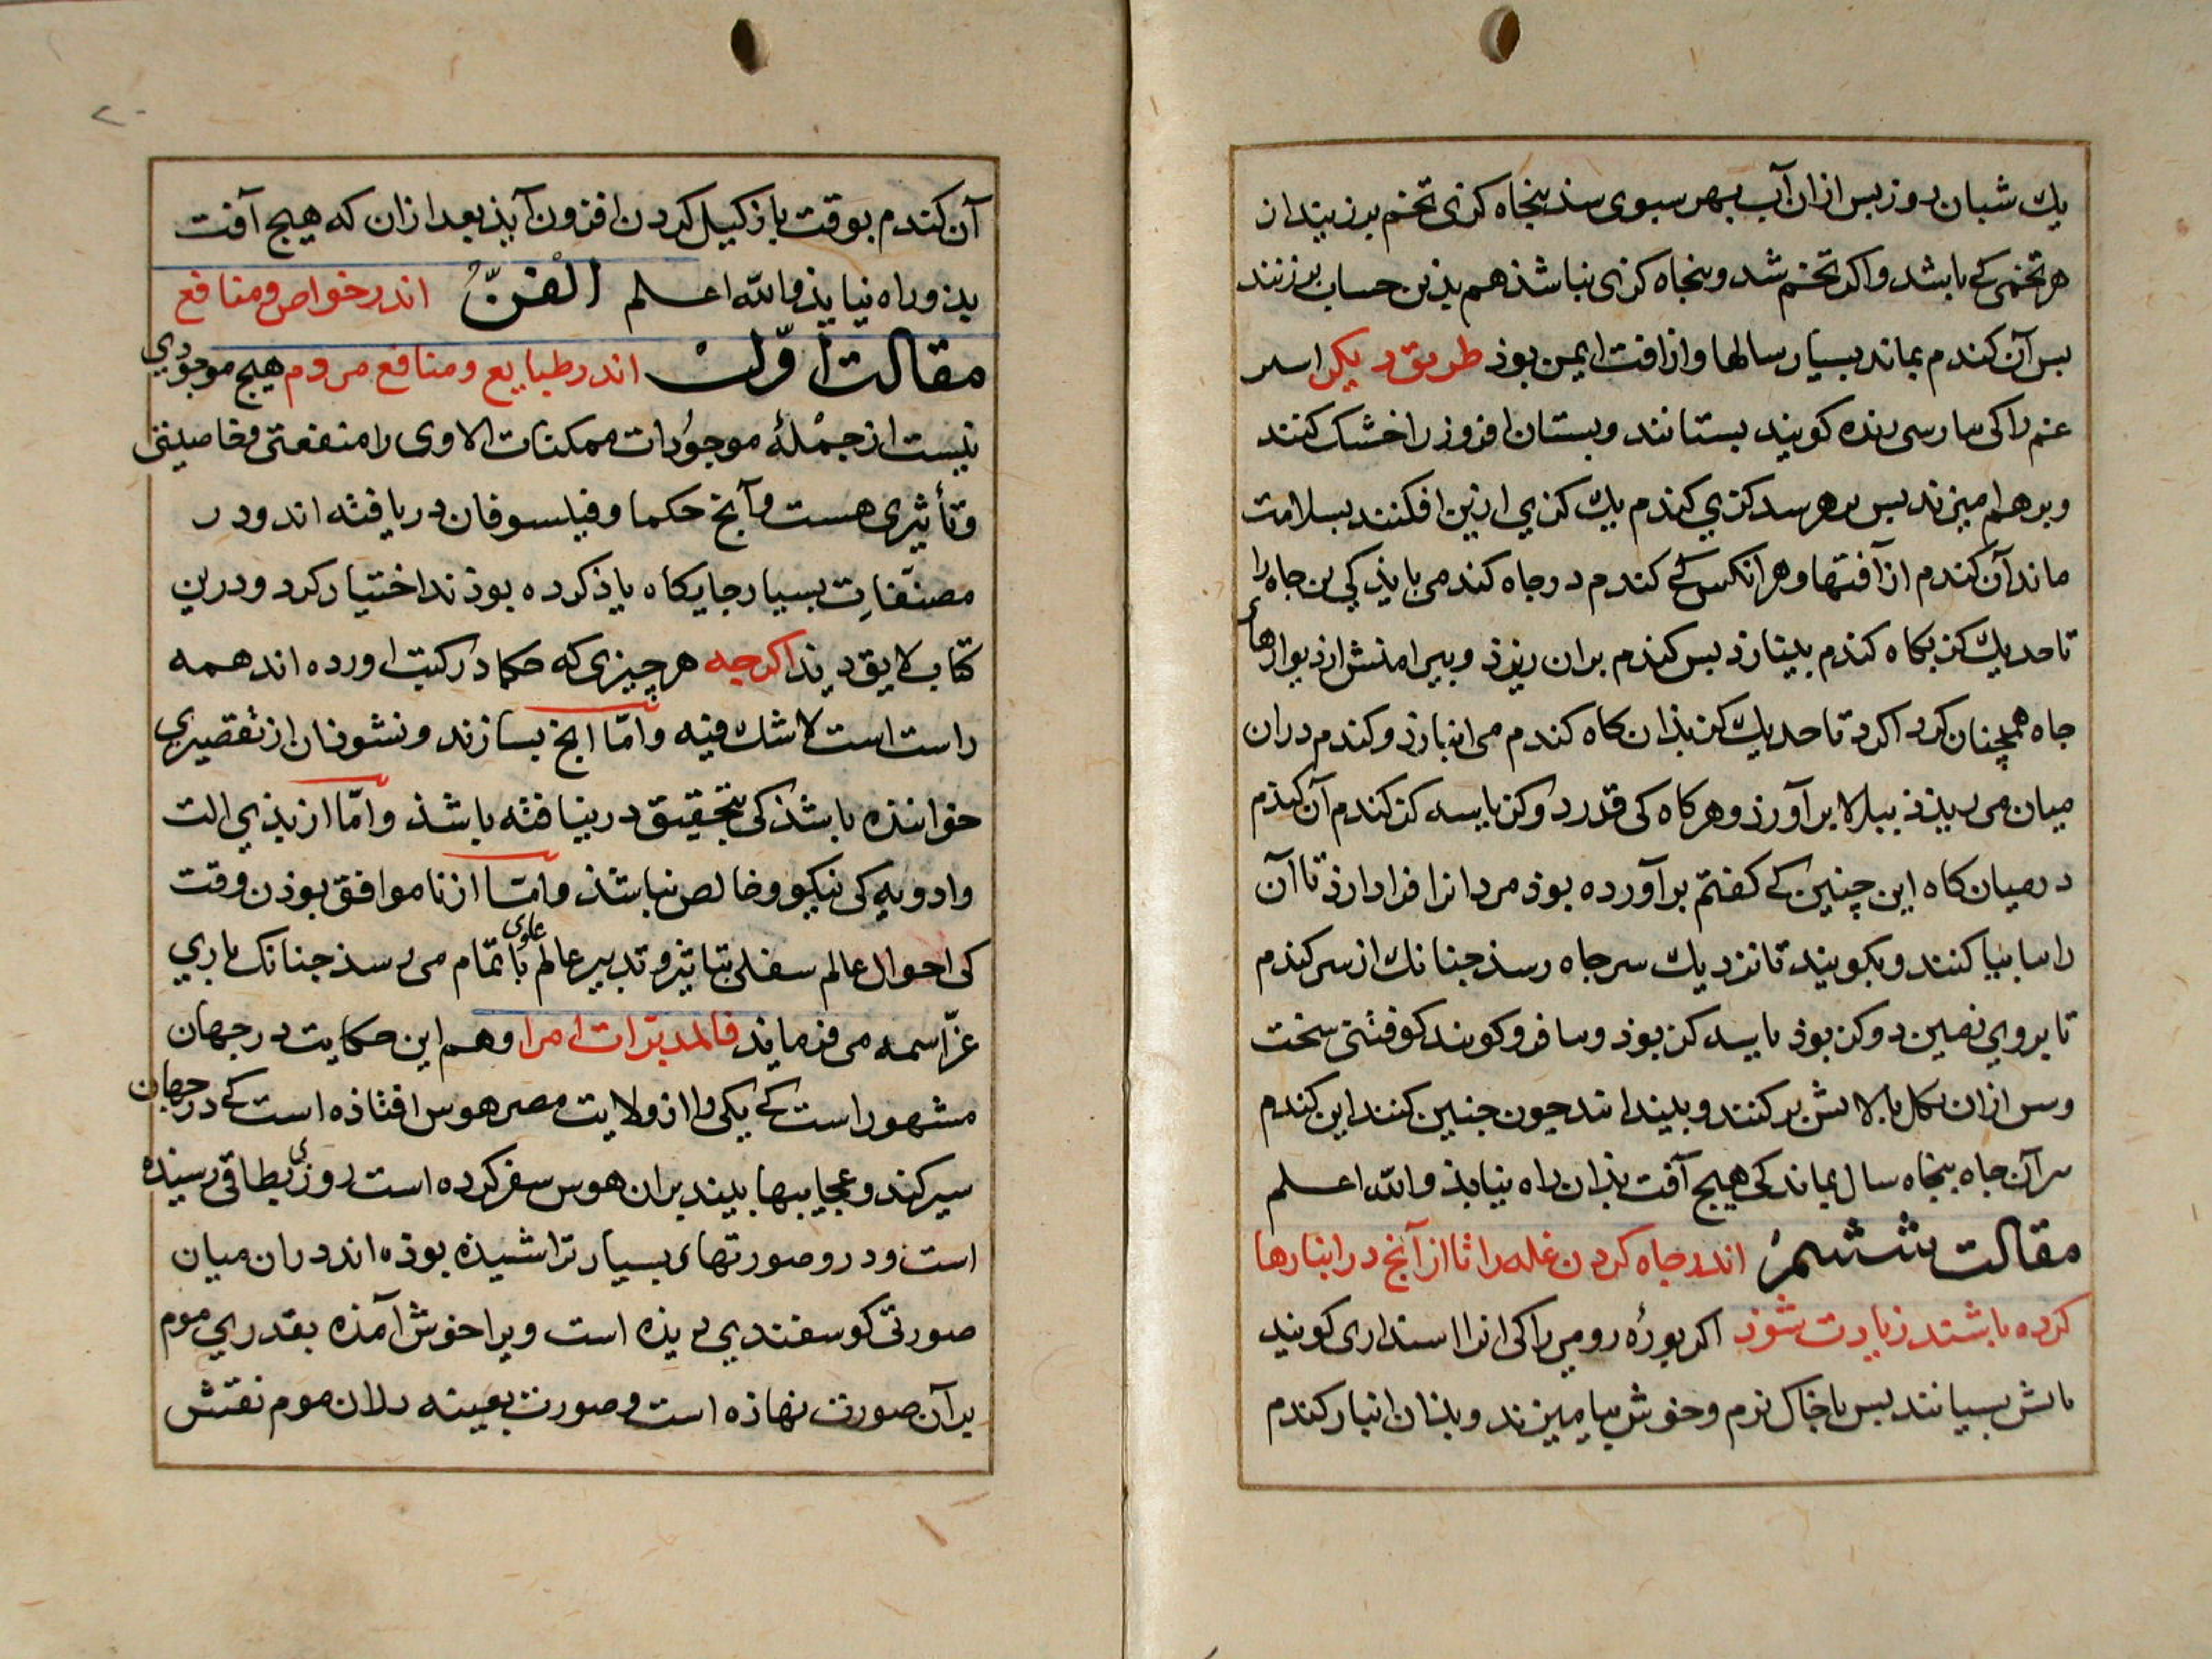 یك شبان روز بس ازان آب بهر سبوی سذ بنجاه کزی تخم برز بیند از
هر تخمی کے باشد واکر تخم شد و بنجاه کزی نباشذ هم بذین حساب برزنند
بس آن کندم بماند بسیار سالها واز افت ایمن بوذ طریق دیکر اسر
عنم را کی بارسی رنده کویند بستانند وبستان افروز را خشک کنند
وبرهم امیزند بس بر هر سد کزي کندم یك کزي ارزین افکنند بسلامت
ماند آن کندم از آفتها وهر انکس کے کندم در جاه کند می باید کی بن جاه را
تا حد یك کز بکاه کندم بینبارذ بس کندم بران ریزذ وبیرامنش از دیوارهای
جاه همچنان کرد اکرد تا حد یك کز بذان کاه کندم می انبارذ وکندم دران
میان می ریزذ ببالا بر آورذ وهر کاه کی قدر دو کز یا سه کز کندم آن کندم
در میان کاه این چنین کے کفتم بر آورده بوذ مردانرا فرادارذ تا آن
را بپا کنند وبکوبند تا نزدیك سر جاه رسذ جنانك از سر کندم
تا بروي زمین دو کز بوذ یا سه کز بوذ وبا فرو کوبند کوفتنی سخت
وبس ازان بکل بالاش بر کنند وبیندانند جون جنین کنند این کندم
در آن جاه بنجاه سال بماند کی هیج آفت بذان راه نیابذ والله اعلم
مقالت ششمر اندر جاه کردن غله را تا از آنج در انبارها
کرده باشند زیادت شوذ اکر بوره رومي را کی انرا اسنداری کویند
باش بسیانند بس با خاك نرم وخوش بیامیزند وبذان انبار کندم
آن کندم بوقت باز کیل کردن افزون آیذ بعد ازان که هیج آفت
بذو راه نیابذ والله اعلم الفنّ اندر خواص ومنافع
مقالت اوّل اندر طبایع ومنافع مردم هیج موجودي
نیست از جملهٔ موجودات ممکنات الا وی را منفعتی وخاصیتی
وتأثیری هست وآنج حکما وفیلسوفان دریافته اند ودر
مصنّفات بسیار جایکاه یاذ کرده بوذند اختیار کرد ودرین
کتاب لایق دید اکرجه هر چیزی که حکما در کتب اورده اند همه
راست است لاشك فیه وامّا انج بسازند ونشوذ ان از تقصیري
خواننده باشذ کی بتحقیق در نیافته باشذ وامّا از بذي الت
وادویه کی نیکو وخالص نباشذ وامّا از ناموافق بوذن وقت
کی احوال عالم سفلی بتاثیر وتدبیر عالم علوی باتمام می رسذ جنانك باري
عزّ اسمه می فرمایذ فالمدبّرات امرا وهم این حکایت در جهان
مشهور است کے یکی را از ولایت مصر هوس افتاذه است کے در جهان
سیر کند وعجایبها بیند بران هوس سفر کرده است روزی بطاقی رسیذه
است ودرو صورتهای بسیار تراشیذه بوذه اند دران میان
صورتی کوسفندي دیذه است ویرا خوش آمذه بقدري موم
بر آن صورت نهاذه است وصورت بعینه بدان موم نقش